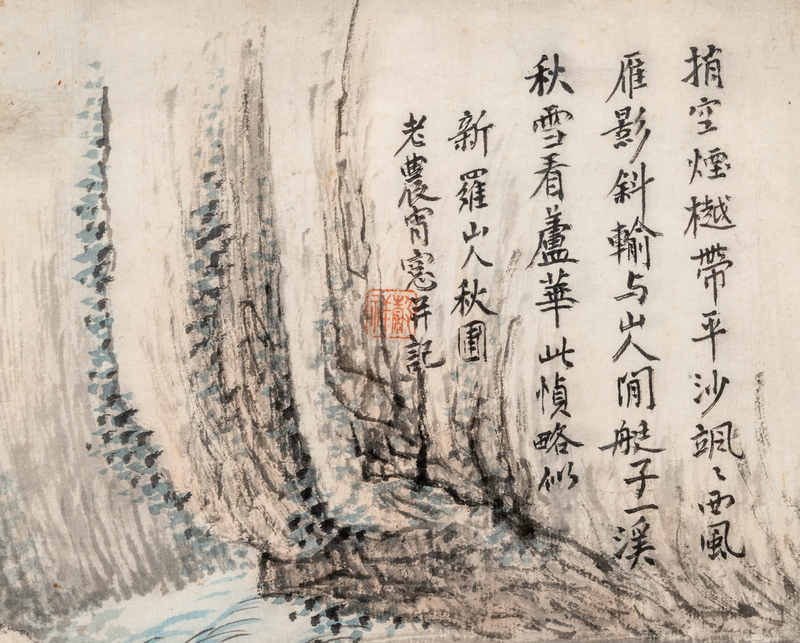 捎空煙樾帶平沙颯〻西風
雁影斜輸与山人閒艇子一溪
秋雪看蘆華此幀略似
新羅山人秋圃
老農宵窓并記